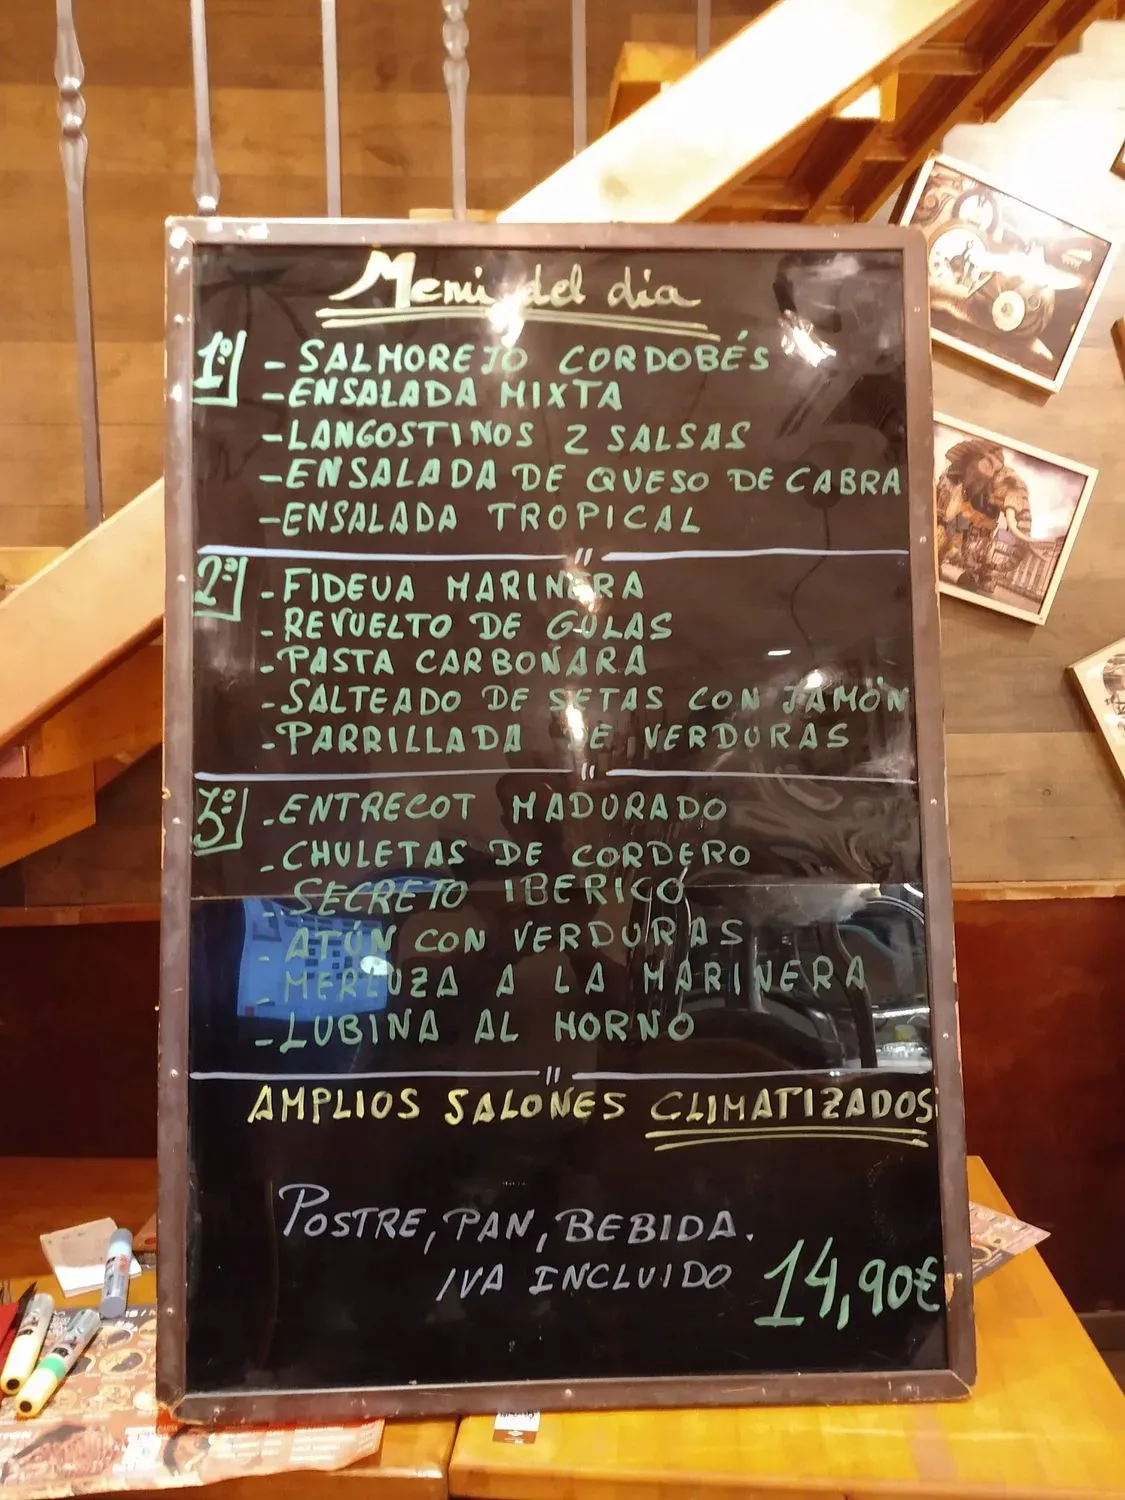 Menú del día
1º - SALMOREJO CORDOBÉS
- ENSALADA MIXTA
- LANGOSTINOS 2 SALSAS
- ENSALADA DE QUESO DE CABRA
- ENSALADA TROPICAL
2º - FIDEUA MARINERA
- REVUELTO DE GULAS
- PASTA CARBONARA
- SALTEADO DE SETAS CON JAMÓN
- PARRILLADA DE VERDURAS
3º - ENTRECOT MADURADO
- CHULETAS DE CORDERO
- SECRETO IBERICO
- ATÚN CON VERDURAS
- MERLUZA A LA MARINERA
- LUBINA AL HORNO
AMPLIOS SALONES CLIMATIZADOS
POSTRE, PAN, BEBIDA.
IVA INCLUIDO 14,90€